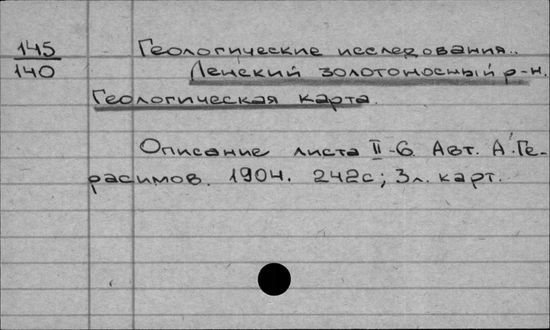 145 Геологические исследования..
140 Ленский золотоносный р-н.
Геологическая карта.
Описание листа II-6. Авт. А.Ге-
расимов. 1904. 242с; 3л. карт.